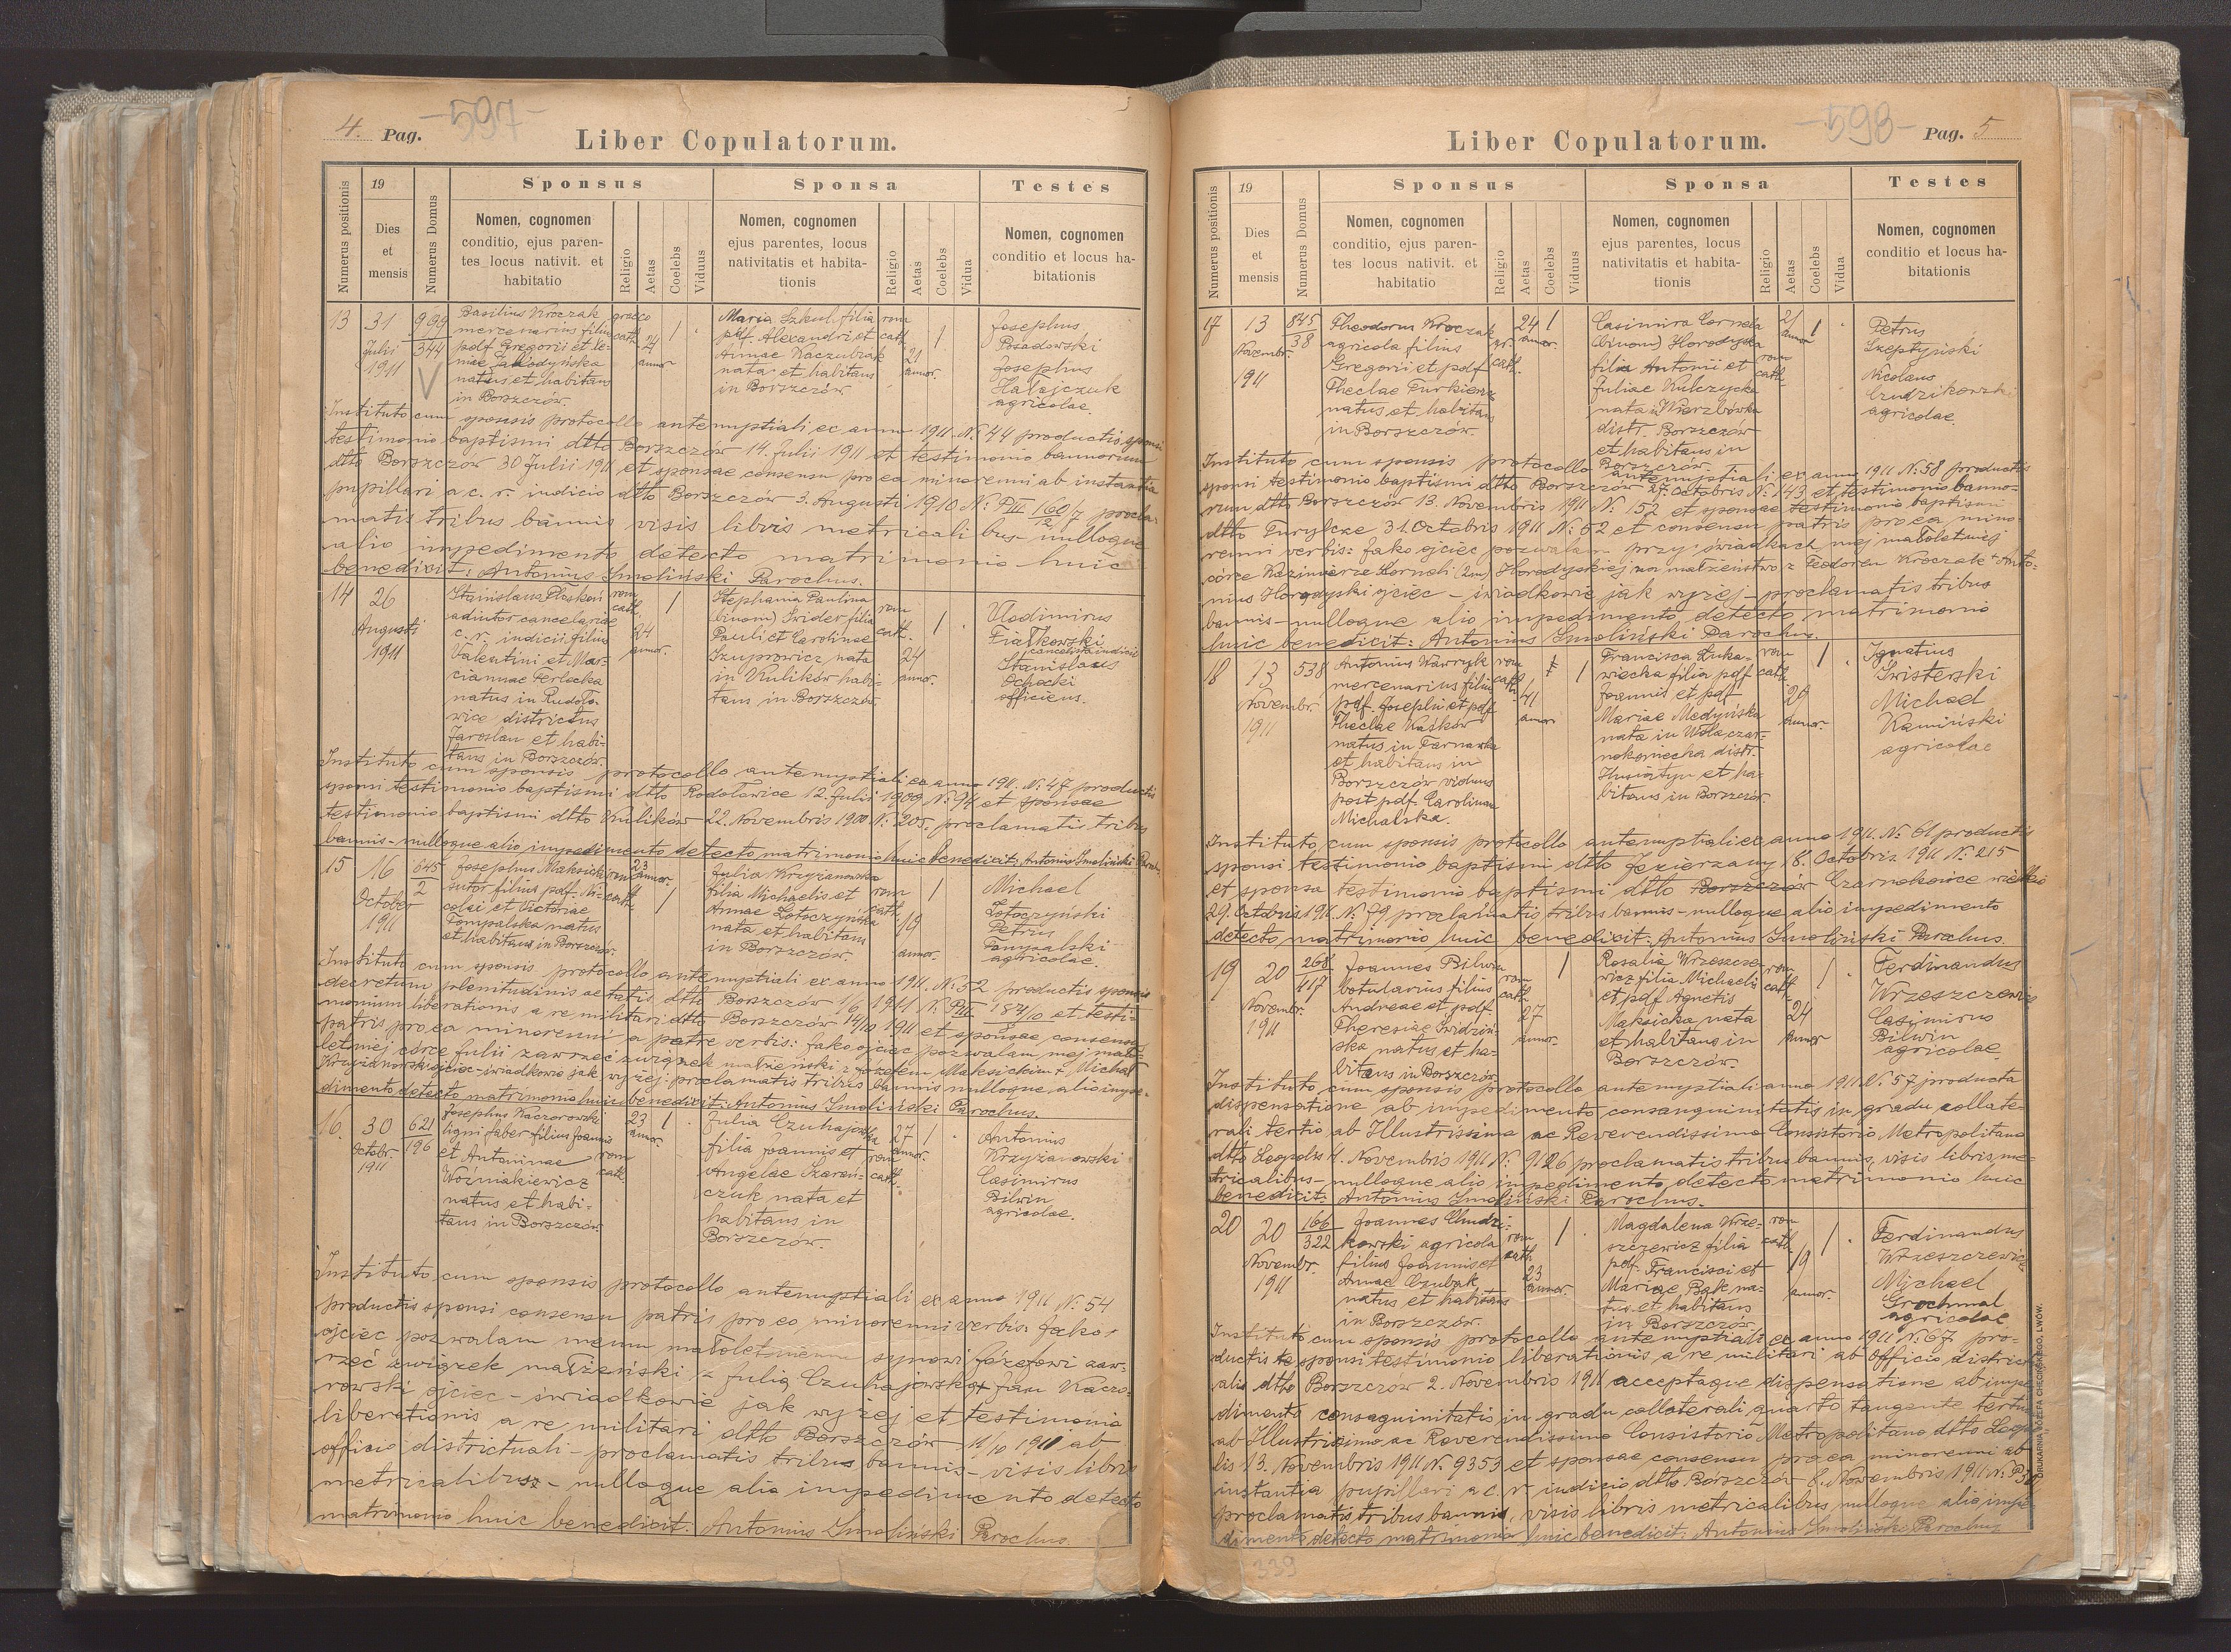 4. Pag. -597-
Liber Copulatorum.
Numerus positionis
19
Dies
et
mensis
Numerus Domus
Sponsus
Nomen, cognomen
conditio, ejus paren-
tes locus nativit. et
habitatio
Religio
Aetas
Coelebs
Viduus
Sponsa
Nomen, cognomen
ejus parentes, locus
nativitatis et habita-
tionis
Religio
Aetas
Coelebs
Vidua
Testes
Nomen, cognomen
conditio et locus ha-
bitationis
13
31
Julii
1911
999
344
Basilius Kroczak
mercenarius filius
pdf. Gregorii et Te-
natus et habitans
in Borszczów.
graeco
cath.
24
annor
1
Maria Szkul filia
pdf. Alexandri et
Annae Kaczubrak
nata et habitans
in Borszczów.
rom
cath.
21
annor.
1
Josephus
Posadowski
Josephus
Hałajczuk
agricolae.
Instituto cum sponsis protocollo antenuptiali ex anno 1911 N. 44 productis sponsi
testimonio baptismi dtto Borszczów 14. Julii 1911 et testimonio bannorum
dtto Borszczów 30 Julii 1911 et sponsae consensu pro ea minorenni ab instantia
pupillari a c. r. indicio dtto Borszczów 3. Augusti 1910 N. P III 160/7 procla-
12
matis tribus bannis visis libris metricalibus nulloque
alio impedimento detecto matrimonio huic
benedixit: Antonius Smoliński Parochus.
14
26
Augusti
1911
Stanislaus Płoskoń
adiutor cancelariae
c. r. indicii filius
Valentini et Mar-
ciannae Terlecka
natus in Rudoło-
wice districtus
Jaroslau et habi-
tans in Borszczów.
rom
cath.
24
annor.
1
Stephania Paulina
(binom) Swider filia
Pauli et Carolinae
Szuprowicz nata
in Kulików habi-
tans in Borszczów.
rom
cath.
24
annor.
1
Vladimirus
Fiałkowski
cancelista indicii
Stanislaus
Ochocki
officiens.
Instituto cum sponsis protocollo antenuptiali ex anno 1911. N. 47 productis
sponsi testimonio baptismi dtto Rodołowice 12 Julii 1909 N. 94 et sponsae
testimonio baptismi dtto Kulików 22. Novembris 1900 N. 205. proclamatis tribus
bannis - nulloque alio impedimento detecto matrimonio huic benedixit: Antonius Smoliński Paroch.
15
16
October
1911
645
2
Josephus Maksicka
sutor filius pdf. Ni-
colai et Victoriae
Tompalska natus
et habitans in Borszczów.
rom
cath.
23
annor.
1
Julia Krzyżanowska
filia Michaelis et
Annae Łotoczyńska
nata et habitans
in Borszczów.
rom
cath.
19
annor.
1
Michael
Łotoczyński
Petrus
Tompalski
agricolae.
Instituto cum sponsis protocollo antenuptiali ex anno 1911. N. 52 productis sponsi
decretum plenitudinis aetatis dtto Borszczów 1/6 1911 N. P III 187/10 et testi-
monium liberationis a re militari dtto Borszczów 14/10 1911 et sponsae consensu
patris pro ea minorenni a patre verbis: Jako ojciec pozwalam mej mało-
letniej córce Julii zawrzeć związek małżeński z Józefem Maksickim + Michał
Krzyżanowski ojciec - świadkowie jak wyżej: proclamatis tribus bannis nulloque alio impe-
dimento detecto matrimonio huic benedixit: Antonius Smoliński Parochus.
16.
30
Octobr.
1911
621
196
Josephus Kaczorowski
ligni faber filius Joannis
et Antoninae
Woźniakiewicz
natus et habi-
tans in Borszczów.
23
annor.
rom
cath.
1
Julia Czuhajowska
filia Joannis et
Angelae Szarań-
czuk nata et
habitans in
Borszczów.
27
annor.
rom
cath.
1
Antonius
Krzyżanowski
Casimirus
Bilwin
agricolae.
Instituto cum sponsis protocollo antenuptiali ex anno 1911 N. 54
productis sponsi consensu patris pro eo minorenni verbis: Jako
ojciec pozwalam memu małoletniemu synowi Józefowi zaw-
rzeć związek małżeński z Julią Czuhajowską + Jan Kaczo-
rowski ojciec - świadkowie jak wyżej et testimonio
liberationis a re militari dtto Borszczów 11/10 1911 ab
officio districtuali - proclamatis tribus bannis - visis libris
metricalibus - nulloque alio impedimento detecto
matrimonio huic benedixit: Antonius Smoliński Parochus.
-598- Pag. 5
Liber Copulatorum.
Numerus positionis
19
Dies
et
mensis
Numerus Domus
Sponsus
Nomen, cognomen
conditio, ejus paren-
tes locus nativit. et
habitatio
Religio
Aetas
Coelebs
Viduus
Sponsa
Nomen, cognomen
ejus parentes, locus
nativitatis et habita-
tionis
Religio
Aetas
Coelebs
Vidua
Testes
Nomen, cognomen
conditio et locus ha-
bitationis
17
13
Novembr.
1911
845
38
Theodorus Kroczak
agricola filius
Gregorii et pdf
Theclae Turkiewicz
natus et habitans
in Borszczów.
gr.
cath.
24
annor.
1
Casimira Cornelia
(binom) Horodyska
filia Antonii et
Juliae Kulczycka
nata in Wierzbówka
distr. Borszczów
et habitans in
Borszczów.
21
annor
rom
cath.
1
Petrus
Szeptyński
Nicolaus
Czudzikowski
agricolae.
Instituto cum sponsis protocollo antenuptiali ex anno 1911 N. 58 productis
sponsi testimonio baptismi dtto Borszczów 27. Octobris N. 143 et testimonio banno-
rum dtto Borszczów 13. Novembris 1911 N. 152 et sponsae testimonio baptismi
dtto Turylcze 31. Octobris 1911 N. 52 et consensu patris pro ea mino-
renni verbis: Jako ojciec pozwalam przy świadkach mej małoletniej
córce Kazimierze Korneli (2im) Horodyskiej na małżeństwo z Teodorem Kroczak + Anto-
nius Horodyski ojciec - świadkowie jak wyżej - proclamatis tribus
bannis - nulloque alio impedimento detecto matrimonio
huic benedixit: Antonius Smoliński Parochus.
18
13
Novembr.
1911
538
Antonius Wawryk
mercenarius filius
pdf. Josephi et pdf
Theclae Kaśków
natus in Tarnawka
et habitans in
Borszczów viduus
post pdf. Carolinam
Michalska.
rom
cath.
41
annor
1
Francisca Łuka-
wiecka filia pdf
Joannis et pdf
Mariae Medyńska
nata in Wola czar-
nokoniecka distr.
Husiatyn et ha-
bitans in Borszczów.
rom
cath.
29
annor.
1
Ignatius
Swisterski
Michael
Kamiński
agricolae
Instituto cum sponsis protocollo antenuptiali ex anno 1911. N. 61 productis
sponsi testimonio baptismi dtto Jezierzany 18. Octobris 1911 N. 215
et sponsa testimonio baptismi dtto Borszczów Czarnokońce wielkie
29. Octobris 1911. N. 79 proclamatis tribus bannis - nulloque alio impedimento
detecto matrimonio huic benedixit: Antonius Smoliński Parochus.
19
20
Novembr.
1911
268
117
Joannes Bilwin
botularius filius
Andreae et pdf.
Theresiae Świdziń-
ska natus et ha-
bitans in Borszczów
rom
cath.
27
annor.
1
Rosalia Wrzeszcze-
wicz filia Michaelis
et pdf Agnetis
Maksicka nata
et habitans in
Borszczów.
rom
cath.
24
annor
1
Ferdinandus
Wrzeszczewicz
Casimirus
Bilwin
agricolae.
Instituto cum sponsis protocollo antenuptiali anno 1911 N. 57 producta
dispensatione ab impedimento consanguinitatis in gradu collate-
rali tertio ab Illustrissimo ac Reverendissimo Consistorio Metropolitano
dtto Leopolis 4. Novembris 1911 N. 9126 proclamatis tribus bannis, visis libris me-
tricalibus - nulloque alio impedimento detecto matrimonio huic
benedixit: Antonius Smoliński Parochus.
20
20
Novembr.
1911
166
322
Joannes Chudzi-
kowski agricola
filius Joannis et
Annae Czubak
natus et habitans
in Borszczów.
rom
cath
23
annor.
1
Magdalena Wrze-
szczewicz filia
pdf. Francisci et
Mariae Bąk na-
ta et habitans
in Borszczów.
rom
cath.
19
annor.
1
Ferdinandus
Wrzeszczewicz
Michael
Grochmal
agricolae
Instituto cum sponsis protocollo antenuptiali ex anno 1911 N. 67 pro-
ductis sponsi testimonio liberationis a re militari ab officio districtu-
ali dtto Borszczów 2. Novembris 1911 acceptaque dispensatione ab impe-
dimento consaguinitatis in gradu collaterali quarto tangente tertium
ab Illustrissimo ac Reverendissimo Consistorio Metropolitano dtto Leopo-
lis 13. Novembris 1911 N. 9353 et sponsae consensu pro ea minorenni ab
instantia pupillari a c. r. indicio dtto Borszczów 8. Novembris 1911 N. P
proclamatis tribus bannis, visis libris metricalibus nulloque alio impe-
dimento detecto matrimonio huic benedixit: Antonius Smoliński Parochus
DRUKARNIA JÓZEFA CHĘCIŃSKIEGO, LWÓW.
339